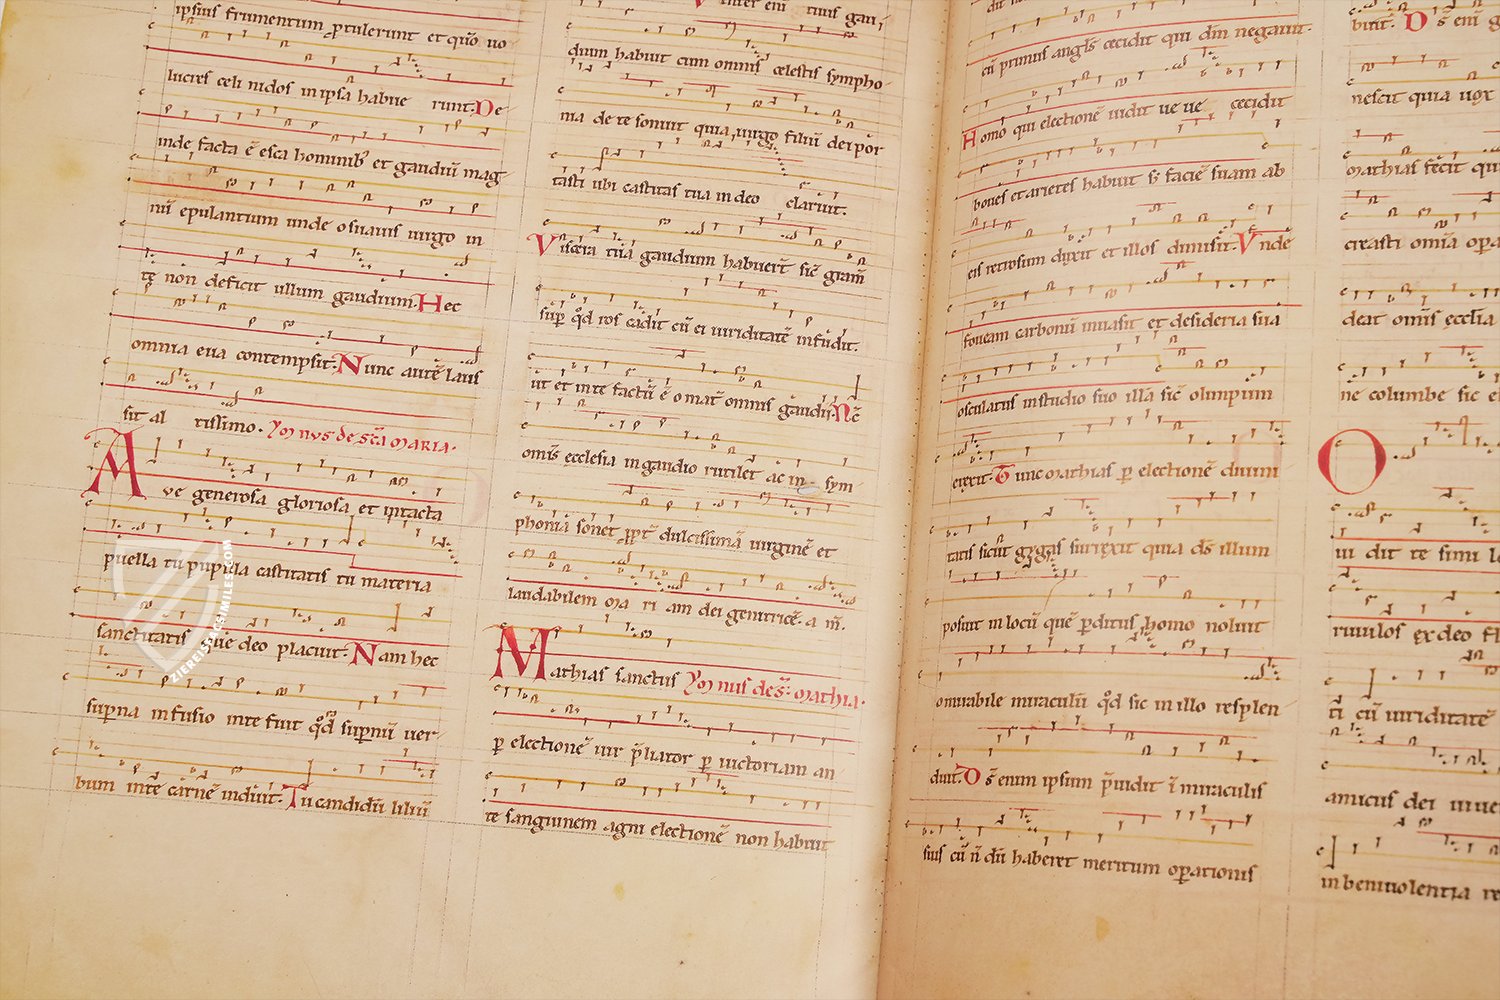 ipsius frumentum ꝓtulerunt et qūo uo
lucres celi nidos in ipsa habue runt. De
inde facta ē esca hominibꝰ et gaudiū mag
nū epulantium unde o suauis uirgo in
te non deficit ullum gaudium. Hec
omnia eua contempsit. Nunc autē laus
sit al tissimo. Ymnus de scā maria.
Ave generosa gloriosa et intacta
puella tu pupilla castitatis tu materia
sanctitatis que deo placuit. Nam hec
supͬna infusio in te fuit qd̄ supͬnū uer
bum in te carnē induit. Tu candidū liliū
Venter enī tuus gau
dium habuit cum omnis celestis sympho
nia de te sonuit quia uirgo filiū dei por
tasti ubi castitas tua in deo claruit.
Viscera tua gaudium habuerт̄ sic gram̄
sup qd̄ ros cadit cū ei uiriditatē infudit.
ut et in te factū ē o mat̄ omnis gaudii. Nc̄
omīs ecclesia in gaudio rutilet ac in sym
phonia sonet ꝓpt̄ dulcissimā uirginē et
laudabilem ma ri am dei genitricē. a m̄.
Mathias sanctus Ymnus de s. mathia.
ꝑ electionē uir p̄liator ꝑ uictoriam an
te sanguinem agni electionē non habuit
cū primus angls̄ cecidit qui dm̄ negauit.
Homo qui electionē uidit ue ue cecidit
boues et arietes habuit s; faciē suam ab
eis retrorsum duxit et illos dimisit. Vnde
foueam carbonū inuasit et desideria sua
osculatus in studio suo illa sic olimpum
erexit. Tunc mathias ꝑ electionē diuini
tatis sicut gygas surrexit quia ds̄ illum
posuit in locū quē ꝑditus homo noluit
o mirabile miraculū qd̄ sic in illo resplen
duit. Ds̄ enim ipsum p̄uidit ī miraculis
suis cū n̄ dū haberet meritum oꝑationis
buit. Ds̄ enī g
nescit quia uox
mathias fecit qu
creasti omīa opa
deat omīs eccl̄ia
ne columbe sic e
O
ui dit te simi l
riuulos ex deo fl
ti cū uiriditatē
amicus dei uiue
in beniuolentia re
ZIEREISFACSIMILES.COM